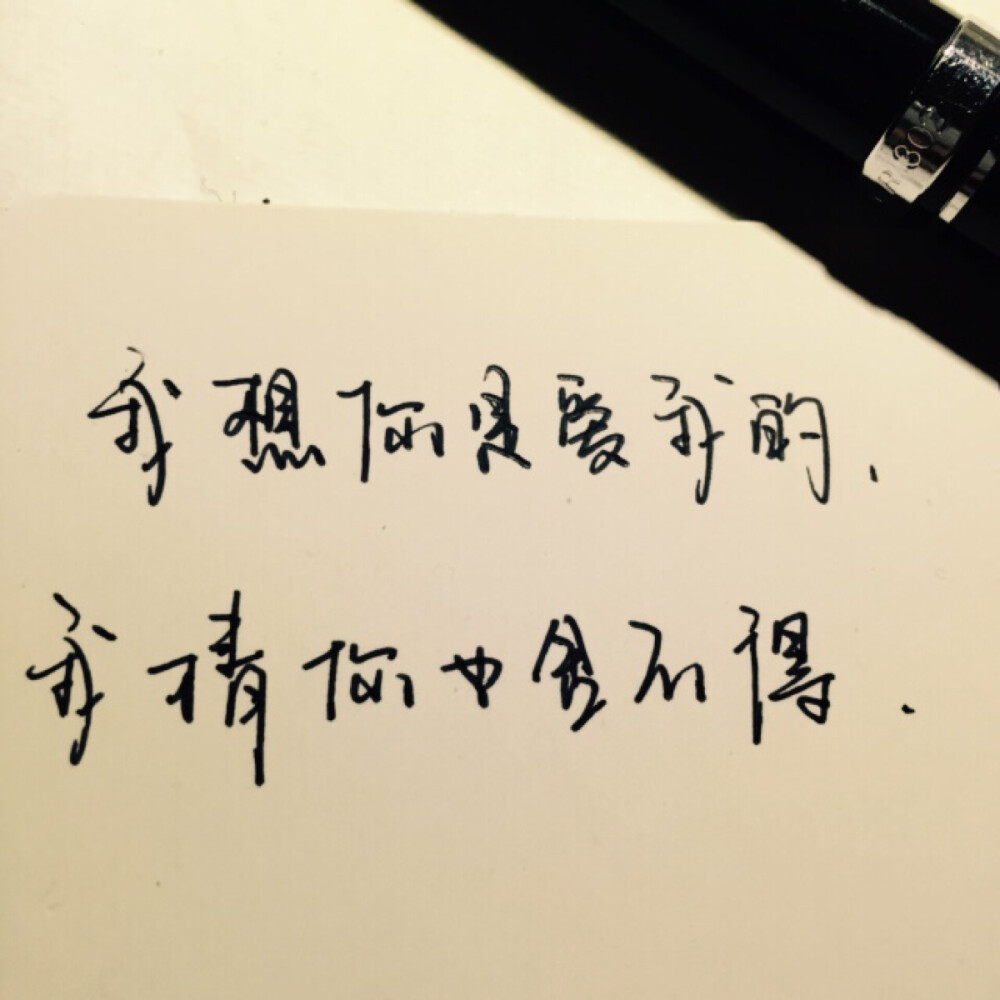 302
我想你是爱我的.
我猜你也舍不得.